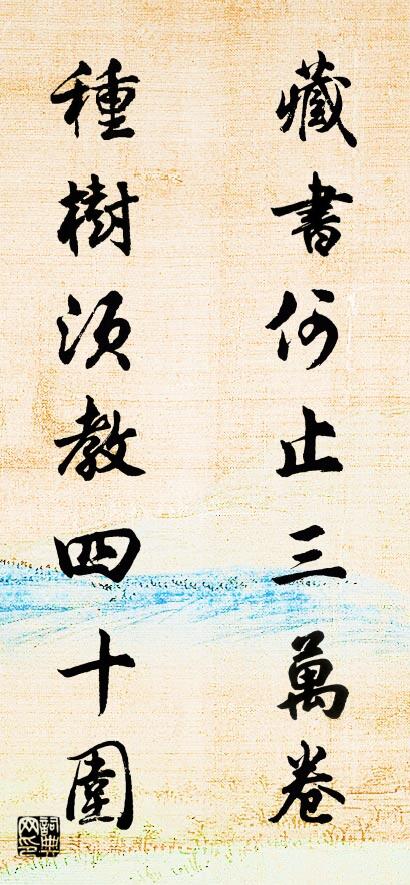 藏書何止三萬卷
種樹須教四十圍
詞典网印